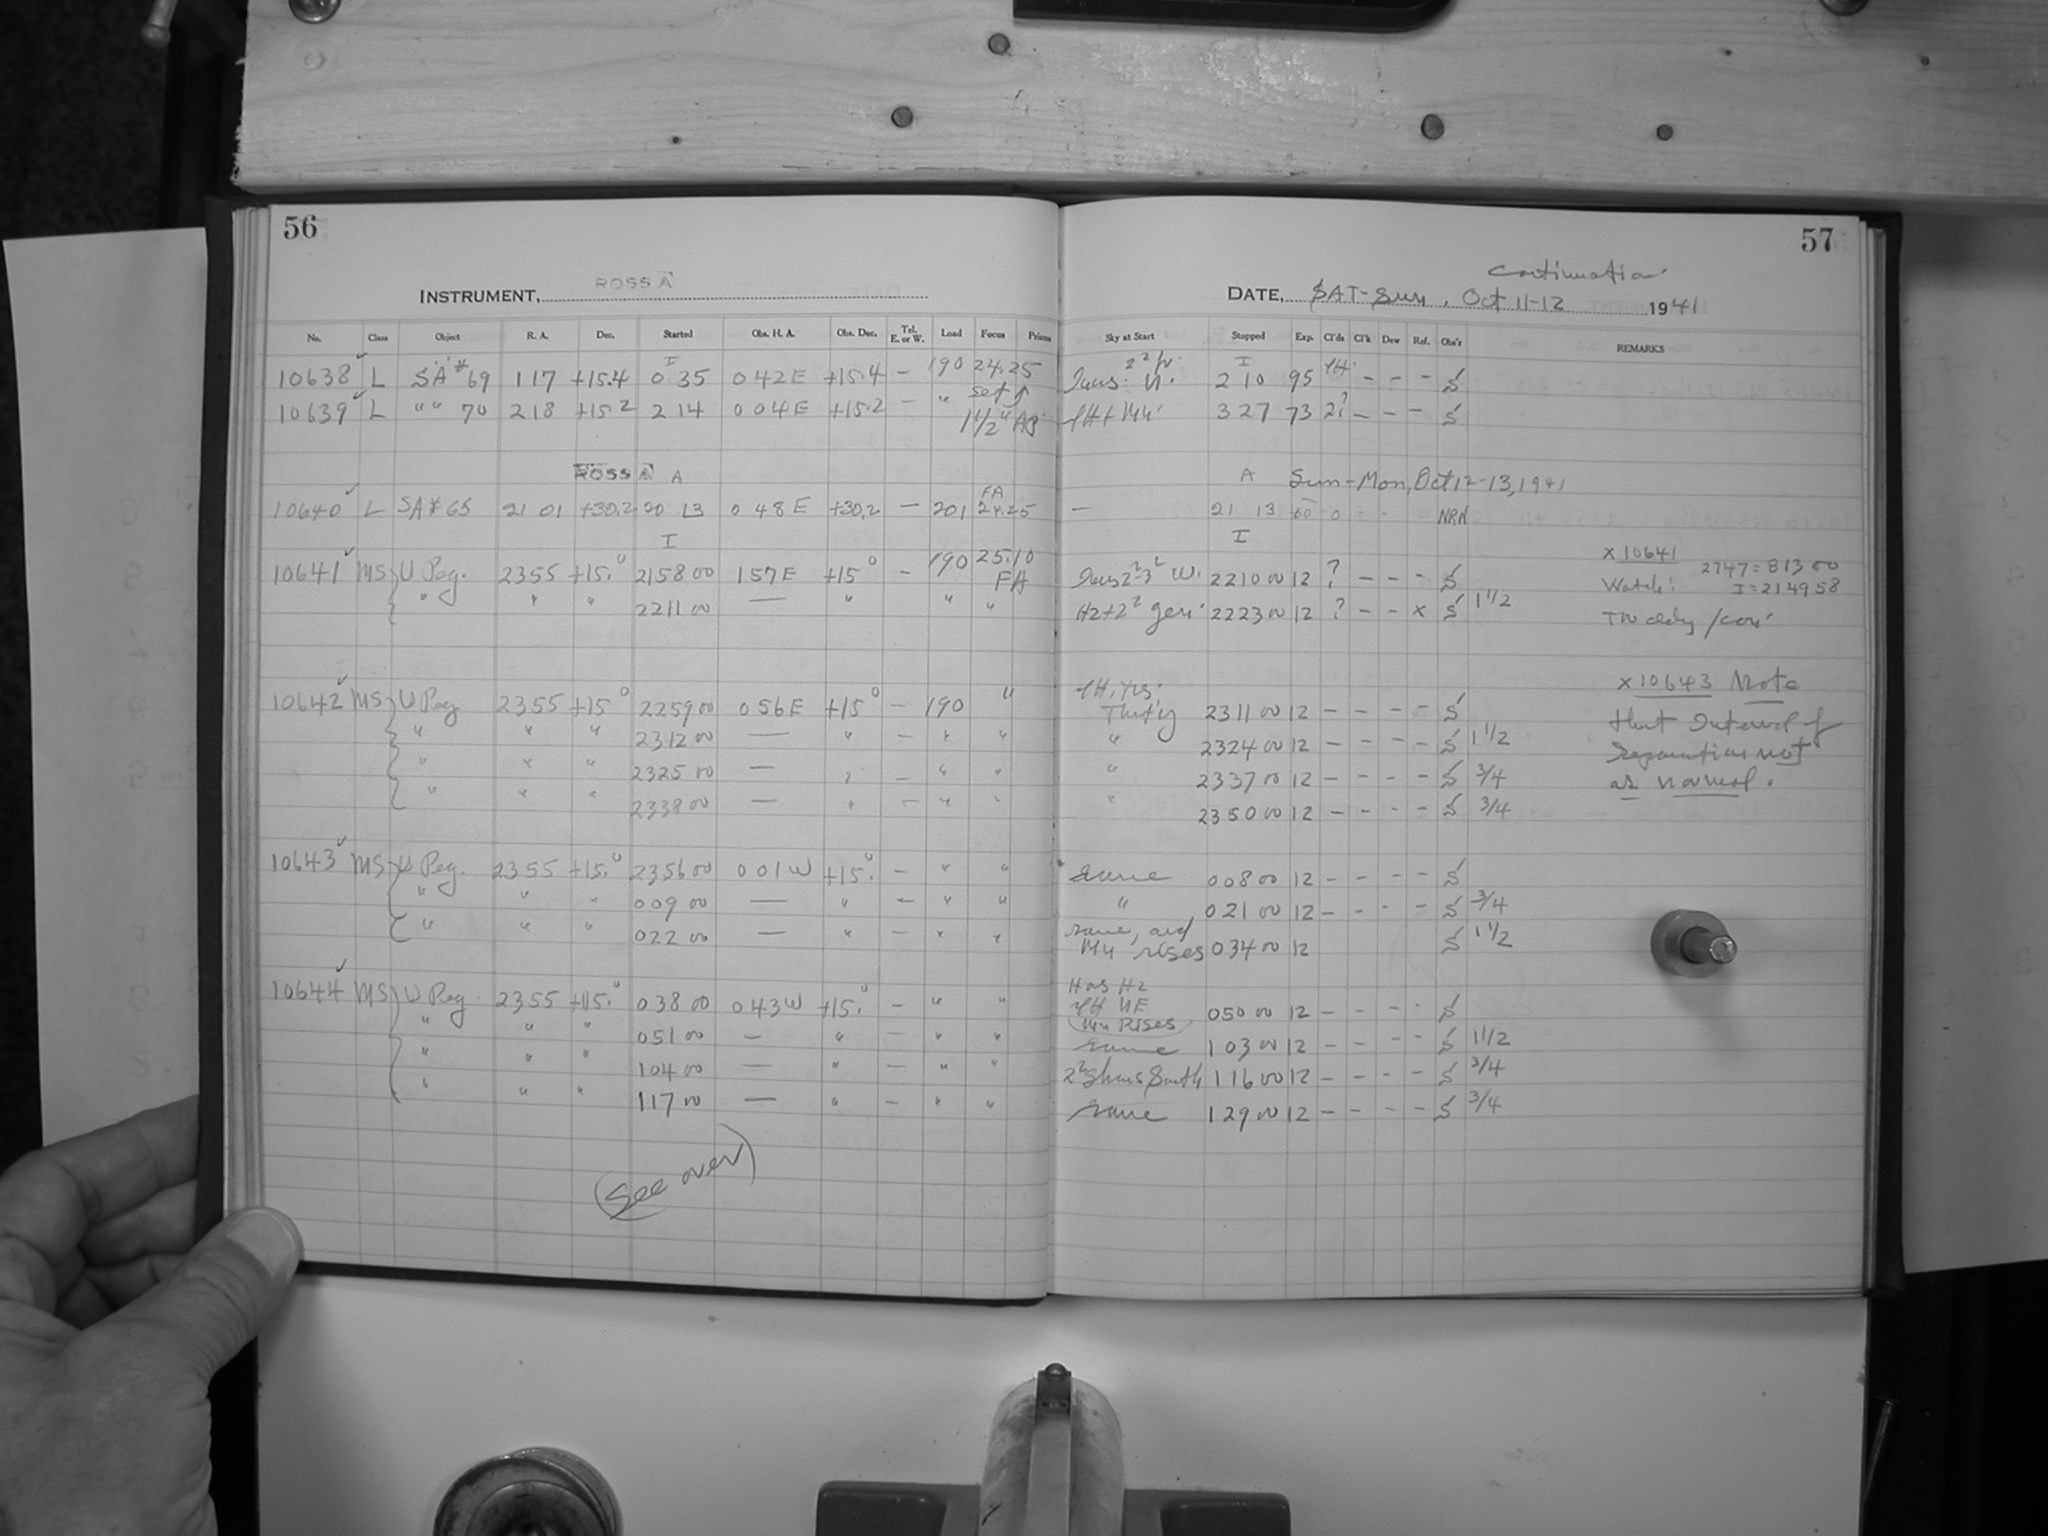 56
INSTRUMENT, ROSS A
No. Class Object R. A. Dec. Started Obs. H. A. Obs. Dec. Tel. E. or W. Load Focus Prisms
I
10638 L SA # 69 117 +15.4 0 35 0 42 E +15.4 - 190 24.25
set of
10639 L " " 70 218 +15.2 2 14 0 04 E +15.2 - " 1 1/2" Ap
ROSS A A
FA
10640 L SA # 65 21 01 +30.2 20 13 0 48 E +30.2 - 201 24.25
I
10641 MS U Peg. 2355 +15.° 2158 00 157 E +15° - 190 25.10
FA
" " " 2211 00 — " " "
10642 MS U Peg 2355 +15° 2259 00 0 56 E +15° - 190 "
" " " 2312 00 — " - " "
" " " 2325 00 — " - " "
" " " 2338 00 — " - " "
10643 MS U Peg. 2355 +15.° 2356 00 0 01 W +15.° - " "
" " " 009 00 — " - " "
" " " 022 00 — " - " "
10644 MS U Peg. 2355 +15.° 038 00 043 W +15.° - " "
" " " 051 00 — " - " "
" " " 104 00 — " - " "
" " " 117 00 — " - " "
(See over)
57
Continuation
DATE, SAT-Sun, Oct 11-12 1941
Sky at Start Stopped Exp. Cl'ds Cl'k Dew Ref. Obs'r REMARKS
I
2 10 95 - - - S
3 27 73 2? - - - S
A Sun-Mon, Oct 12-13, 1941
— 21 13 60 0 - - NRN
I
x 10641
2747 = 813 00
2210 00 12 ? - - - S Watch: I = 214958
Hz + 2² 2223 00 12 ? - - x S 1 1/2
x 10643 Note
2311 00 12 - - - - S that Interval of
" 2324 00 12 - - - - S 1 1/2 Separation not
" 2337 00 12 - - - - S 3/4 as normal.
" 2350 00 12 - - - - S 3/4
Same 008 00 12 - - - - S
" 021 00 12 - - - - S 3/4
same, and
rises 034 00 12 S 1 1/2
Has Hz
NE 050 00 12 - - - - S
Rises
same 1 03 00 12 - - - - S 1 1/2
South 116 00 12 - - - - S 3/4
same 129 00 12 - - - - S 3/4